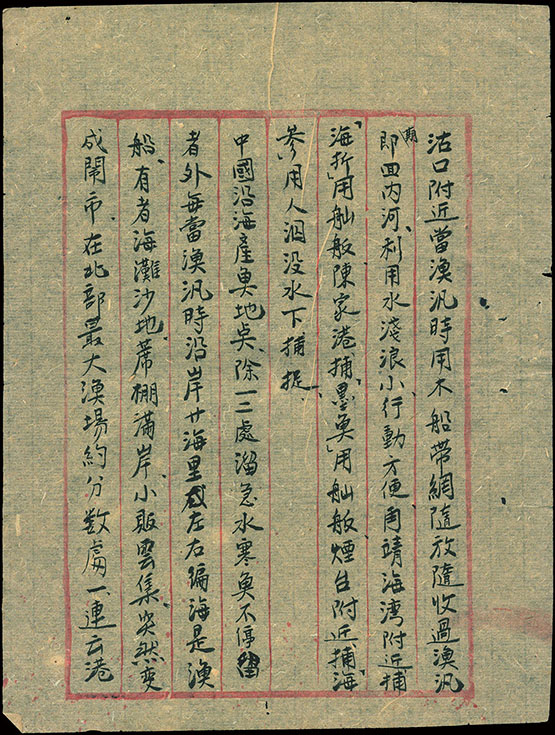 沽口附近當漁汎時用木船帶網隨放隨收過漁汎
期即回內河、利用水淺浪小、行動方便、靖海湾附近捕
「海折」用舢舨陳家港捕「墨魚」用舢舨、煙台附近、捕「海
參」用人泅没水下捕捉、
中國沿海產魚地点、除一二處溜急水寒魚不停留
者外每當漁汎時沿岸廿海里左右徧海是漁
船、有者海灘沙地、蓆棚滿岸、小販雲集、突然变
成鬧市、在北部最大漁場約分数處一、連云港